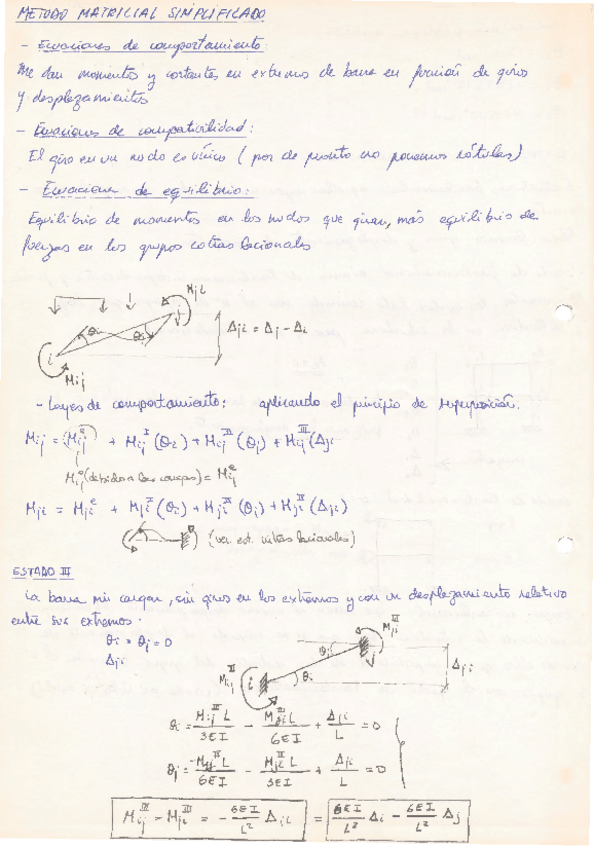 METODO MATRICIAL SIMPLIFICADO
- Ecuaciones de comportamiento:
Me dan momentos y cortantes en extremos de barra en función de giros
y desplazamientos
- Ecuaciones de compatibilidad:
El giro en un nudo es único (por de pronto no ponemos rótulas)
- Ecuaciones de equilibrio:
Equilibrio de momentos en los nudos que giran, más equilibrio de
fuerzas en los grupos
Mji
θi θj
i
Mij
Δji = Δj - Δi
- Leyes de comportamiento: aplicando el principio de superposición.
Mij = Mij^e + Mij^I (θi) + Mij^II (θj) + Mij^III (Δji
Mij^e (debido a las cargas) = Mij^e
Mji = Mji^e + Mji^I (θi) + Mji^II (θj) + Mji^III (Δji)
ESTADO III
La barra sin cargar, sin giros en los extremos y con un desplazamiento relativo
entre sus extremos.
θi = θj = 0
Δji
Mji^III
θj
Mij^III i θi
Δji
θi = Mij^III L / 3EI - Mji^III L / 6EI + Δji / L = 0
θj = -Mij^III L / 6EI - Mji^III L / 3EI + Δji / L = 0
Mij^III - Mji^III = - 6EI / L² Δji = 6EI / L² Δi - 6EI / L² Δj